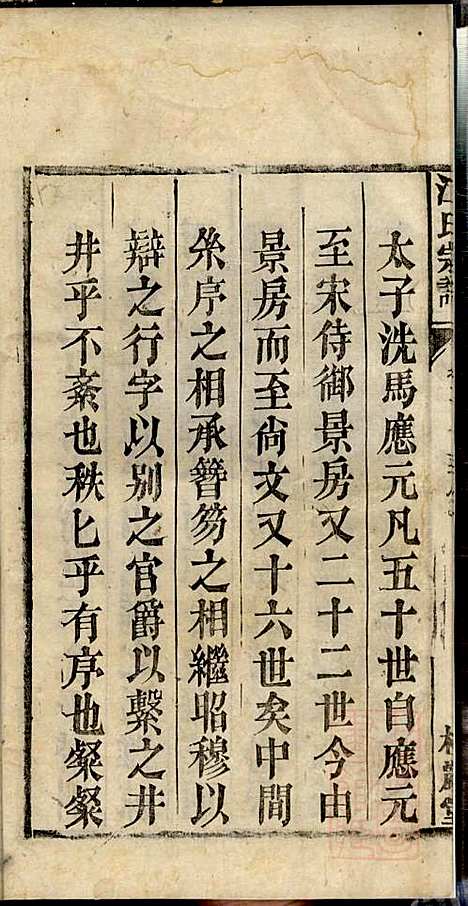 江氏宗譜
太子洗馬應元凡五十世自應元
至宋侍御景房又二十二世今由
景房而至尙文又十六世矣中間
糸序之相承簪笏之相繼昭穆以
辯之行字以别之官爵以繫之井
井乎不紊也秩匕乎有序也粲粲